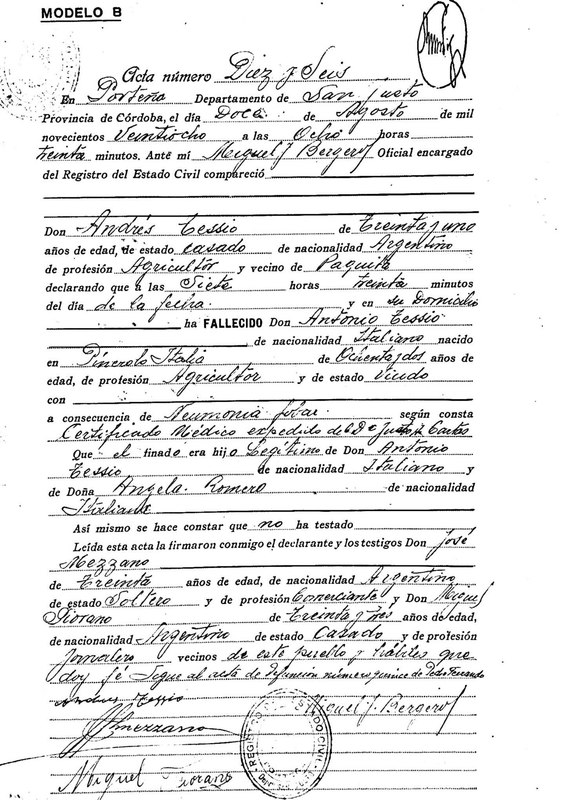 MODELO B
Acta número Diez y Seis
En Porteña Departamento de San Justo
Provincia de Córdoba, el día Doce de Agosto de mil
novecientos Veintiocho a las Ocho horas
treinta minutos. Ante mí Miguel J Bergero Oficial encargado
del Registro del Estado Civil compareció
Don Andrés Tessio de Treinta y uno
años de edad, de estado casado de nacionalidad Argentino
de profesión Agricultor y vecino de Paquita
declarando que a las Siete horas treinta minutos
del día de la fecha. y en su Domicilio
ha FALLECIDO Don Antonio Tessio
de nacionalidad Italiano nacido
en Pincrolo Italia de Ochenta y dos años de
edad, de profesión Agricultor y de estado Viudo
con
a consecuencia de Neumonia según consta
Certificado Médico expedido
Que el finado era hijo Legítimo de Don Antonio
Tessio de nacionalidad Italiano y
de Doña Angela Romero de nacionalidad
Italiana
Así mismo se hace constar que no ha testado
Leída esta acta la firmaron conmigo el declarante y los testigos Don José
Mezzano
de Treinta años de edad, de nacionalidad Argentino
de estado Soltero y de profesión Comerciante y Don Miguel
Fiorano de Treinta y tres años de edad,
de nacionalidad Argentino de estado Casado y de profesión
Jornalero vecinos de este pueblo y hábiles que
doy fé Sigue al acta de Defunción número quince de
Andres Tessio
Miguel J. Bergero
J Mezzano
Miguel Fiorano
REGISTRO CIVIL